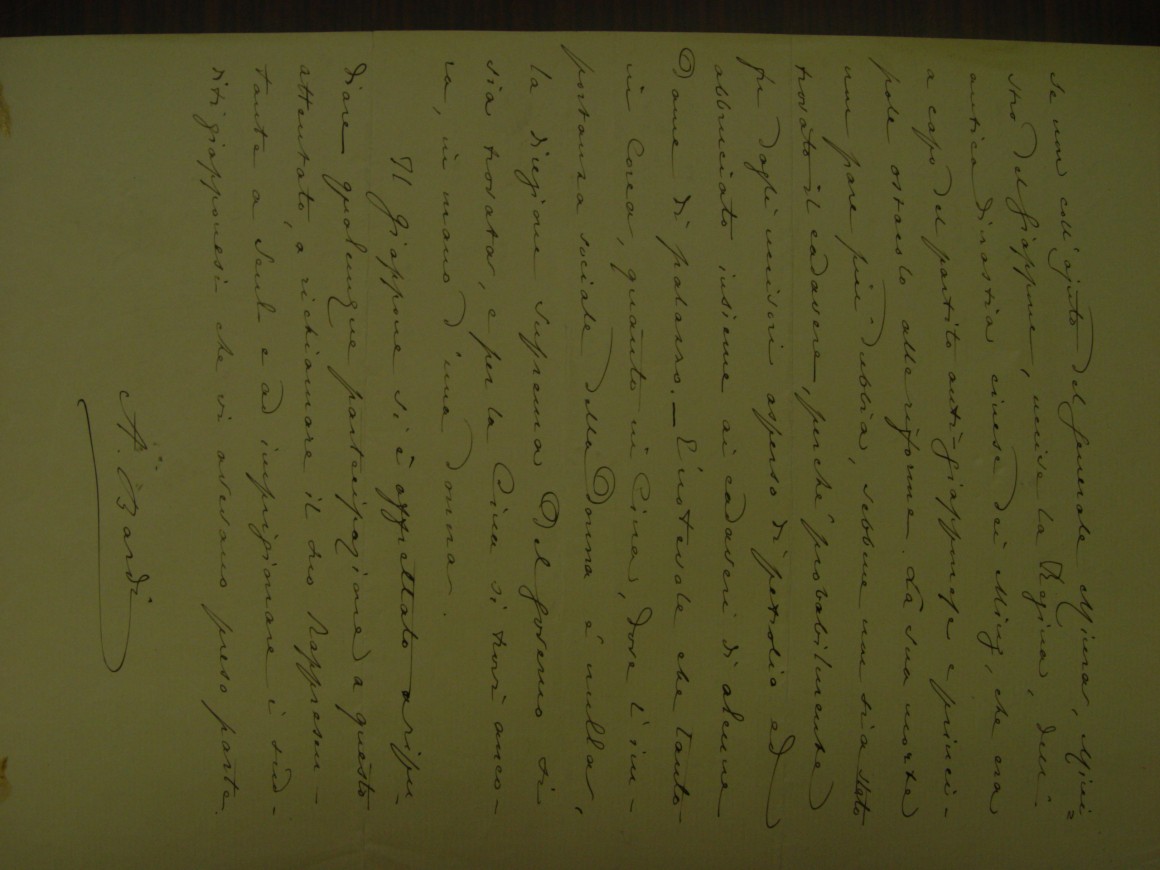 se non coll'ajuto del Generale Miura, Mini=
stro del Giappone, uccise la Regina, dell'
antica dinastia cinese dei Ming, che era
a capo del partito anti-giapponese e princi-
pale ostacolo alle riforme. La sua morte
non pare più dubbia, sebbene non sia stato
trovato il cadavere, perché probabilmente
fu dagli uccisori asperso di petrolio ed
abbruciato insieme ai cadaveri di alcune
Dame di palazzo. — È notevole che tanto
in Corea, quanto in Cina, dove l'im-
portanza sociale della Donna è nulla,
la direzione suprema del governo si
sia trovata, e per la Cina si trovi anco-
ra, in mano d'una donna.
Il Giappone si è affrettato a ripu-
diare qualunque partecipazione a questo
attentato, a richiamare il suo Rappresen-
tante a Seul e ad imprigionare i sud-
diti giapponesi che vi avevano preso parte.
A. Bardi